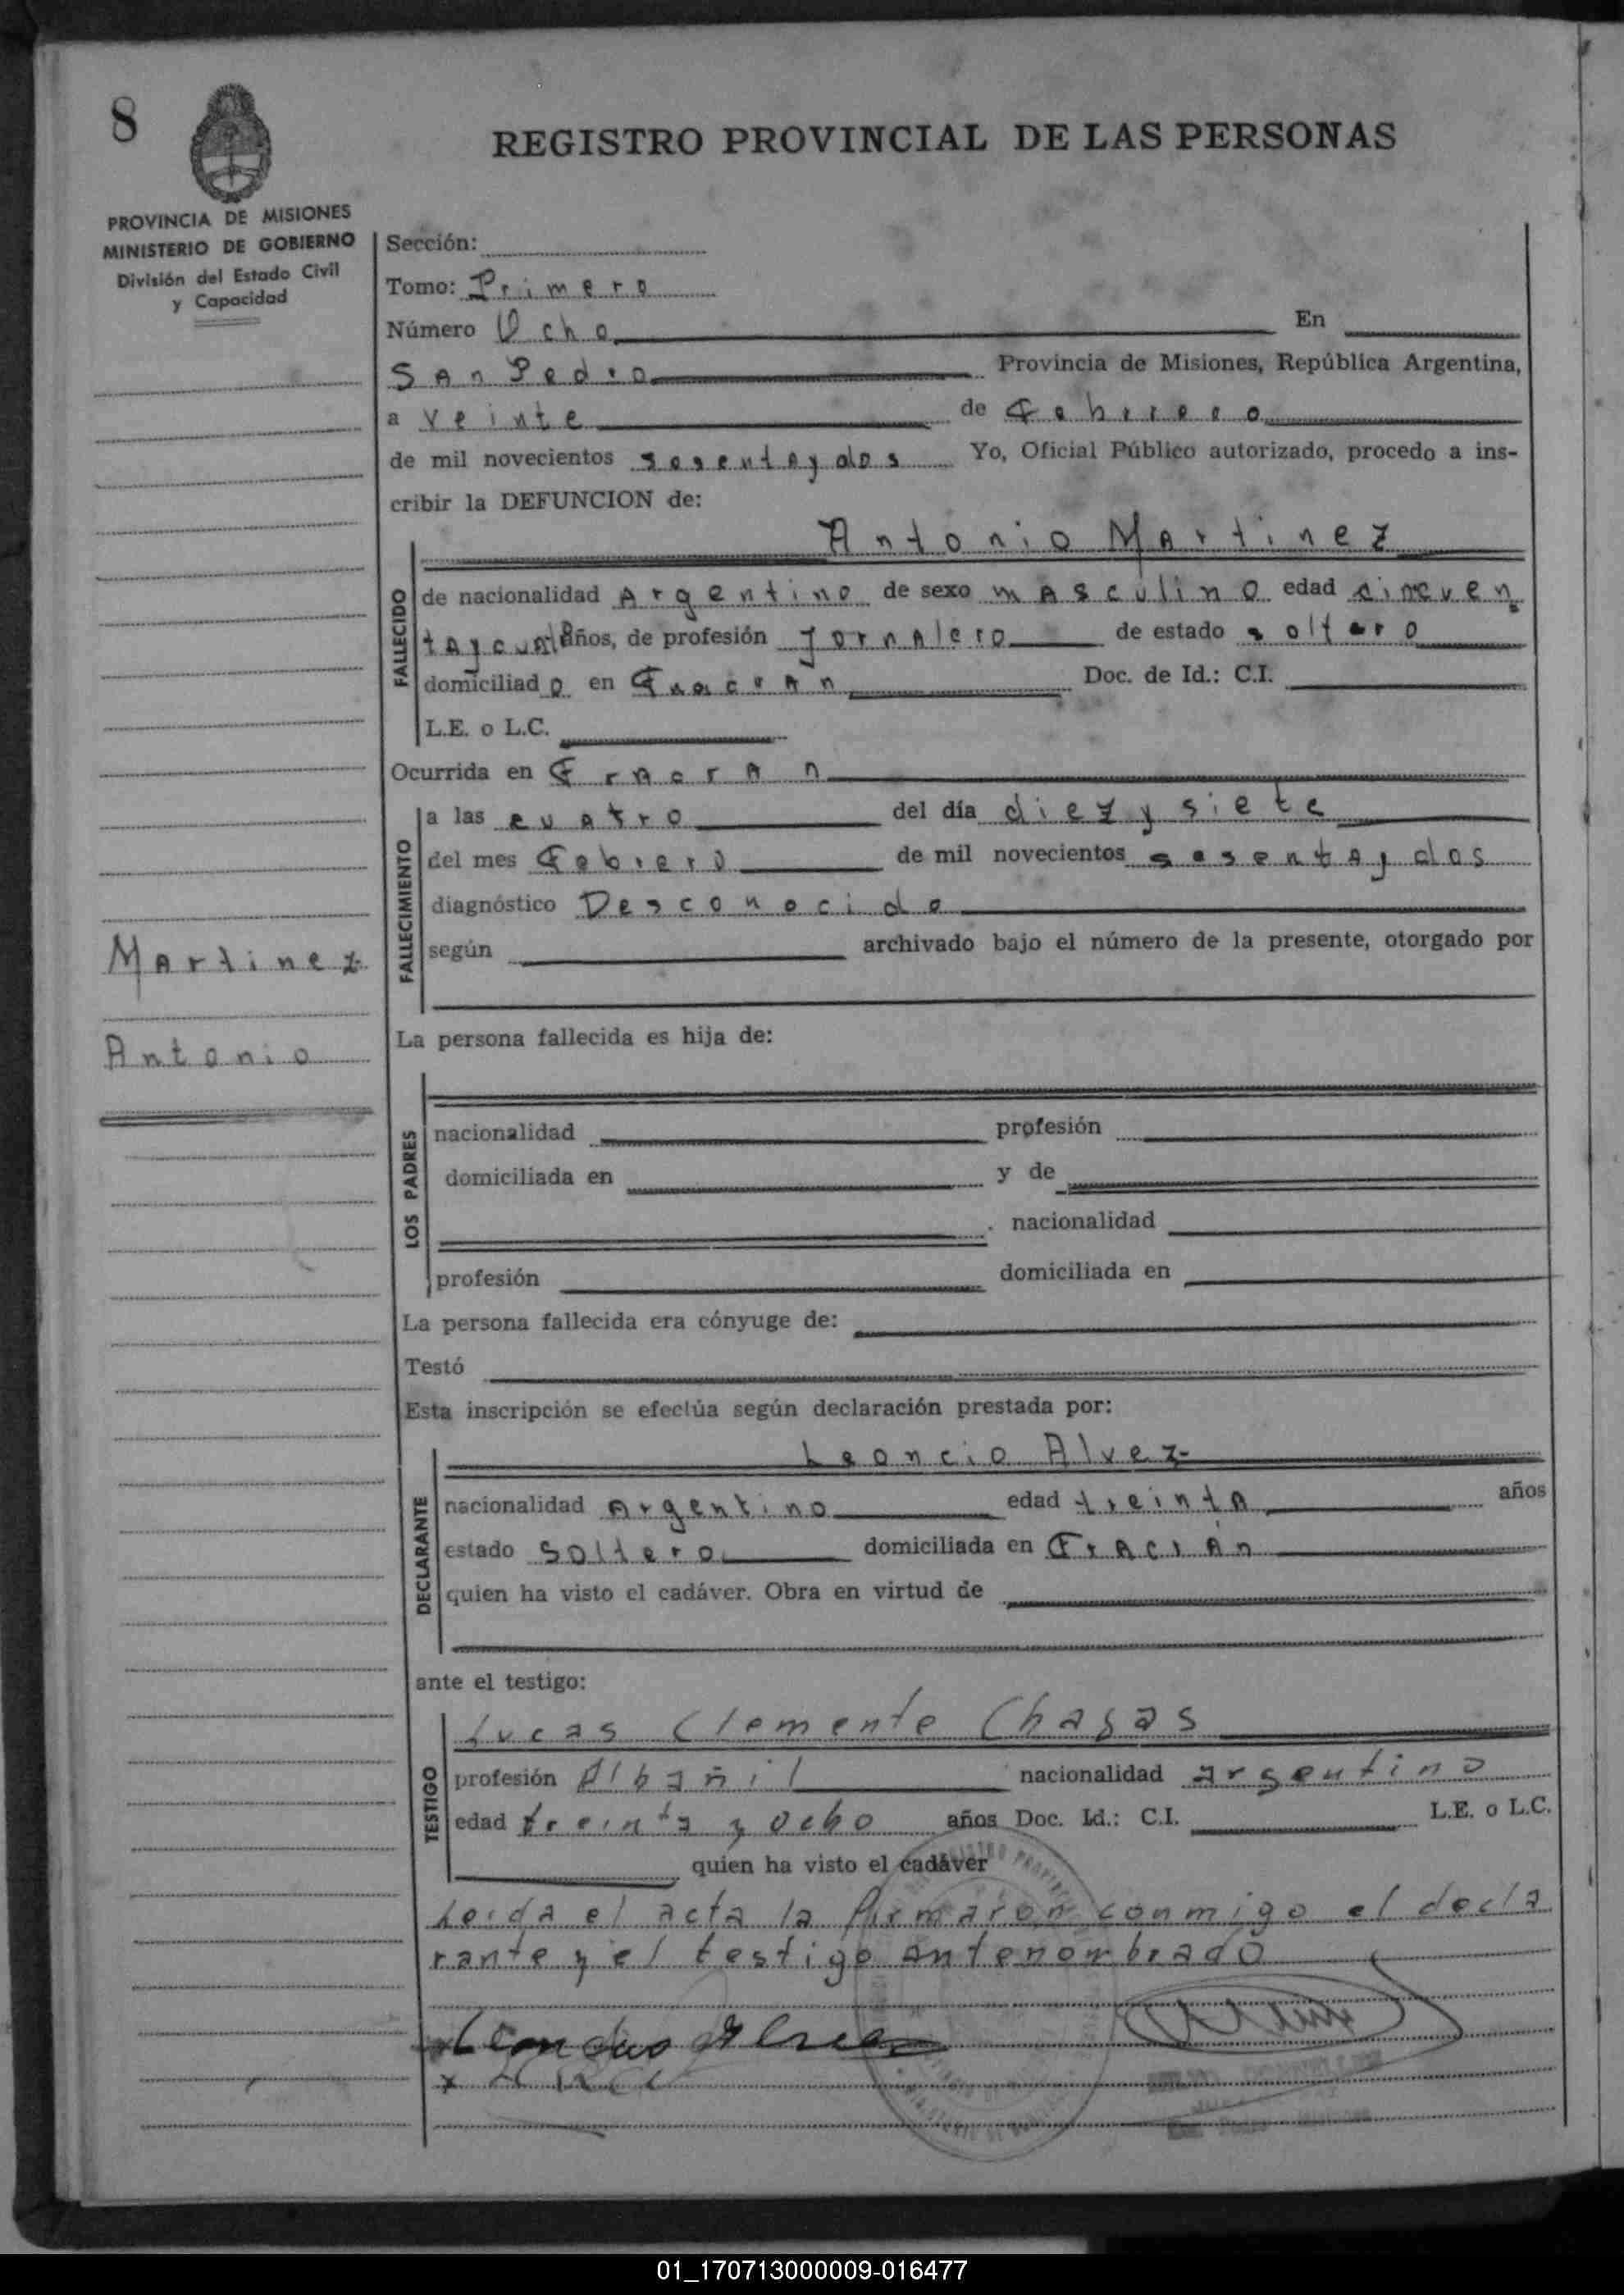 8
REGISTRO PROVINCIAL DE LAS PERSONAS
PROVINCIA DE MISIONES
MINISTERIO DE GOBIERNO
División del Estado Civil
y Capacidad
Sección:
Tomo: Primero
Número Ocho En
San Pedro Provincia de Misiones, República Argentina,
a veinte de Febrero
de mil novecientos sesentaydos Yo, Oficial Público autorizado, procedo a ins-
cribir la DEFUNCION de:
FALLECIDO
Antonio Martinez
de nacionalidad Argentino de sexo masculino edad cincuen
taycuat años, de profesión Jornalero de estado soltero
domiciliado en Fracran Doc. de Id.: C.I.
L.E. o L.C.
Ocurrida en Fracran
FALLECIMIENTO
a las cuatro del día diez y siete
del mes Febrero de mil novecientos sesentay dos
diagnóstico Desconocido
según archivado bajo el número de la presente, otorgado por
Martinez
Antonio
La persona fallecida es hija de:
LOS PADRES
nacionalidad profesión
domiciliada en y de
nacionalidad
profesión domiciliada en
La persona fallecida era cónyuge de:
Testó
Esta inscripción se efectúa según declaración prestada por:
DECLARANTE
Leoncio Alvez
nacionalidad Argentino edad treinta años
estado soltero domiciliada en Fracran
quien ha visto el cadáver. Obra en virtud de
ante el testigo:
TESTIGO
Lucas Clemente Chagas
profesión Albañil nacionalidad argentino
edad treinta y ocho años Doc. Id.: C.I. L.E. o L.C.
quien ha visto el cadáver
Leida el acta la firmaron conmigo el decla
rante y el testigo antenombrado
01_170713000009-016477